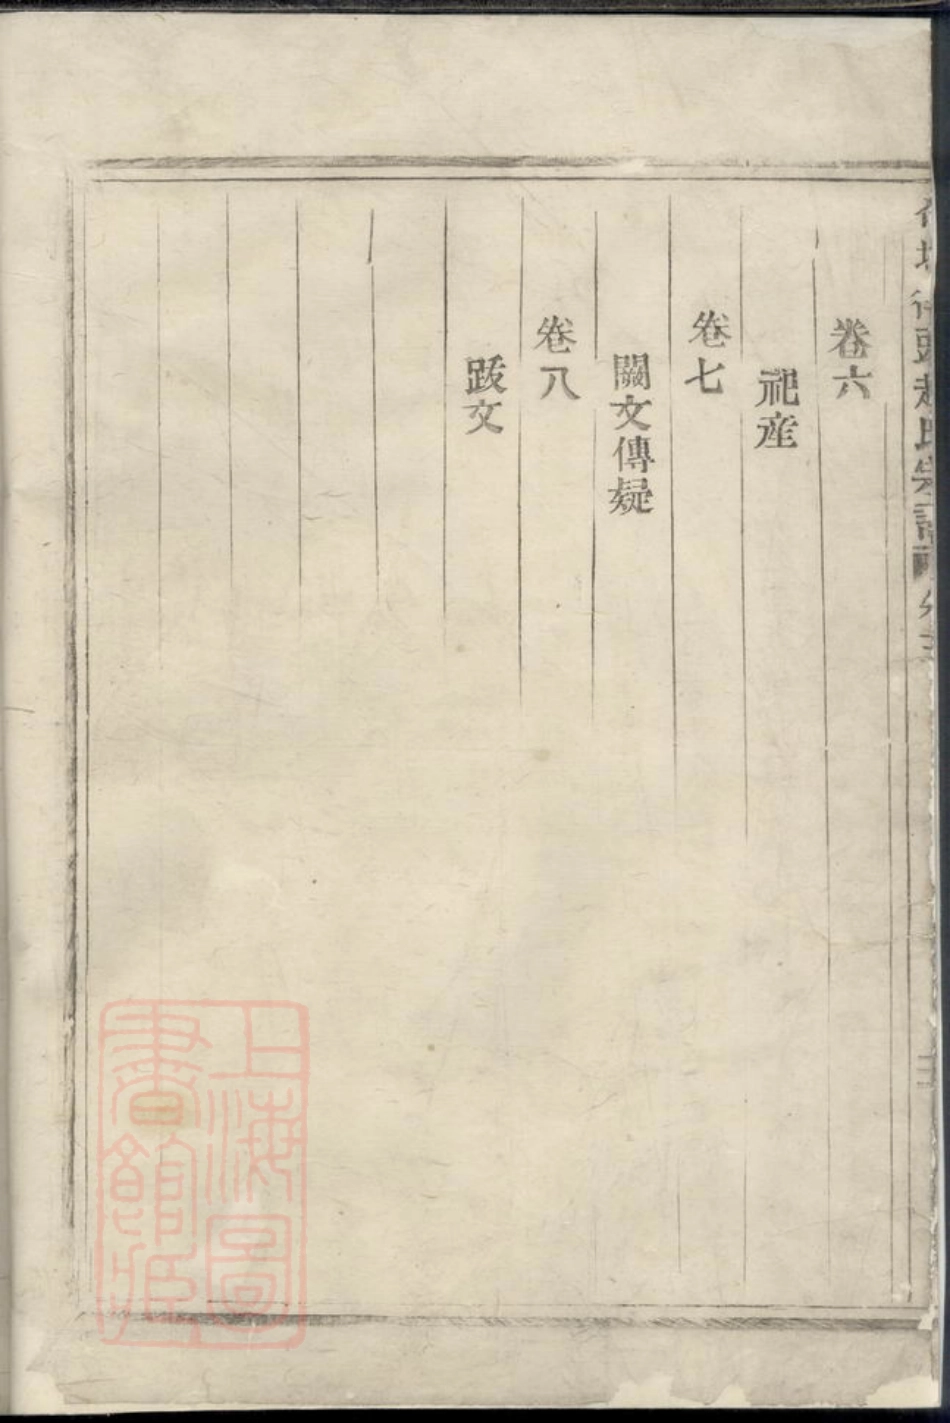 卷六
祀産
卷七
闕文傳疑
卷八
跋文
上海圖
書館藏